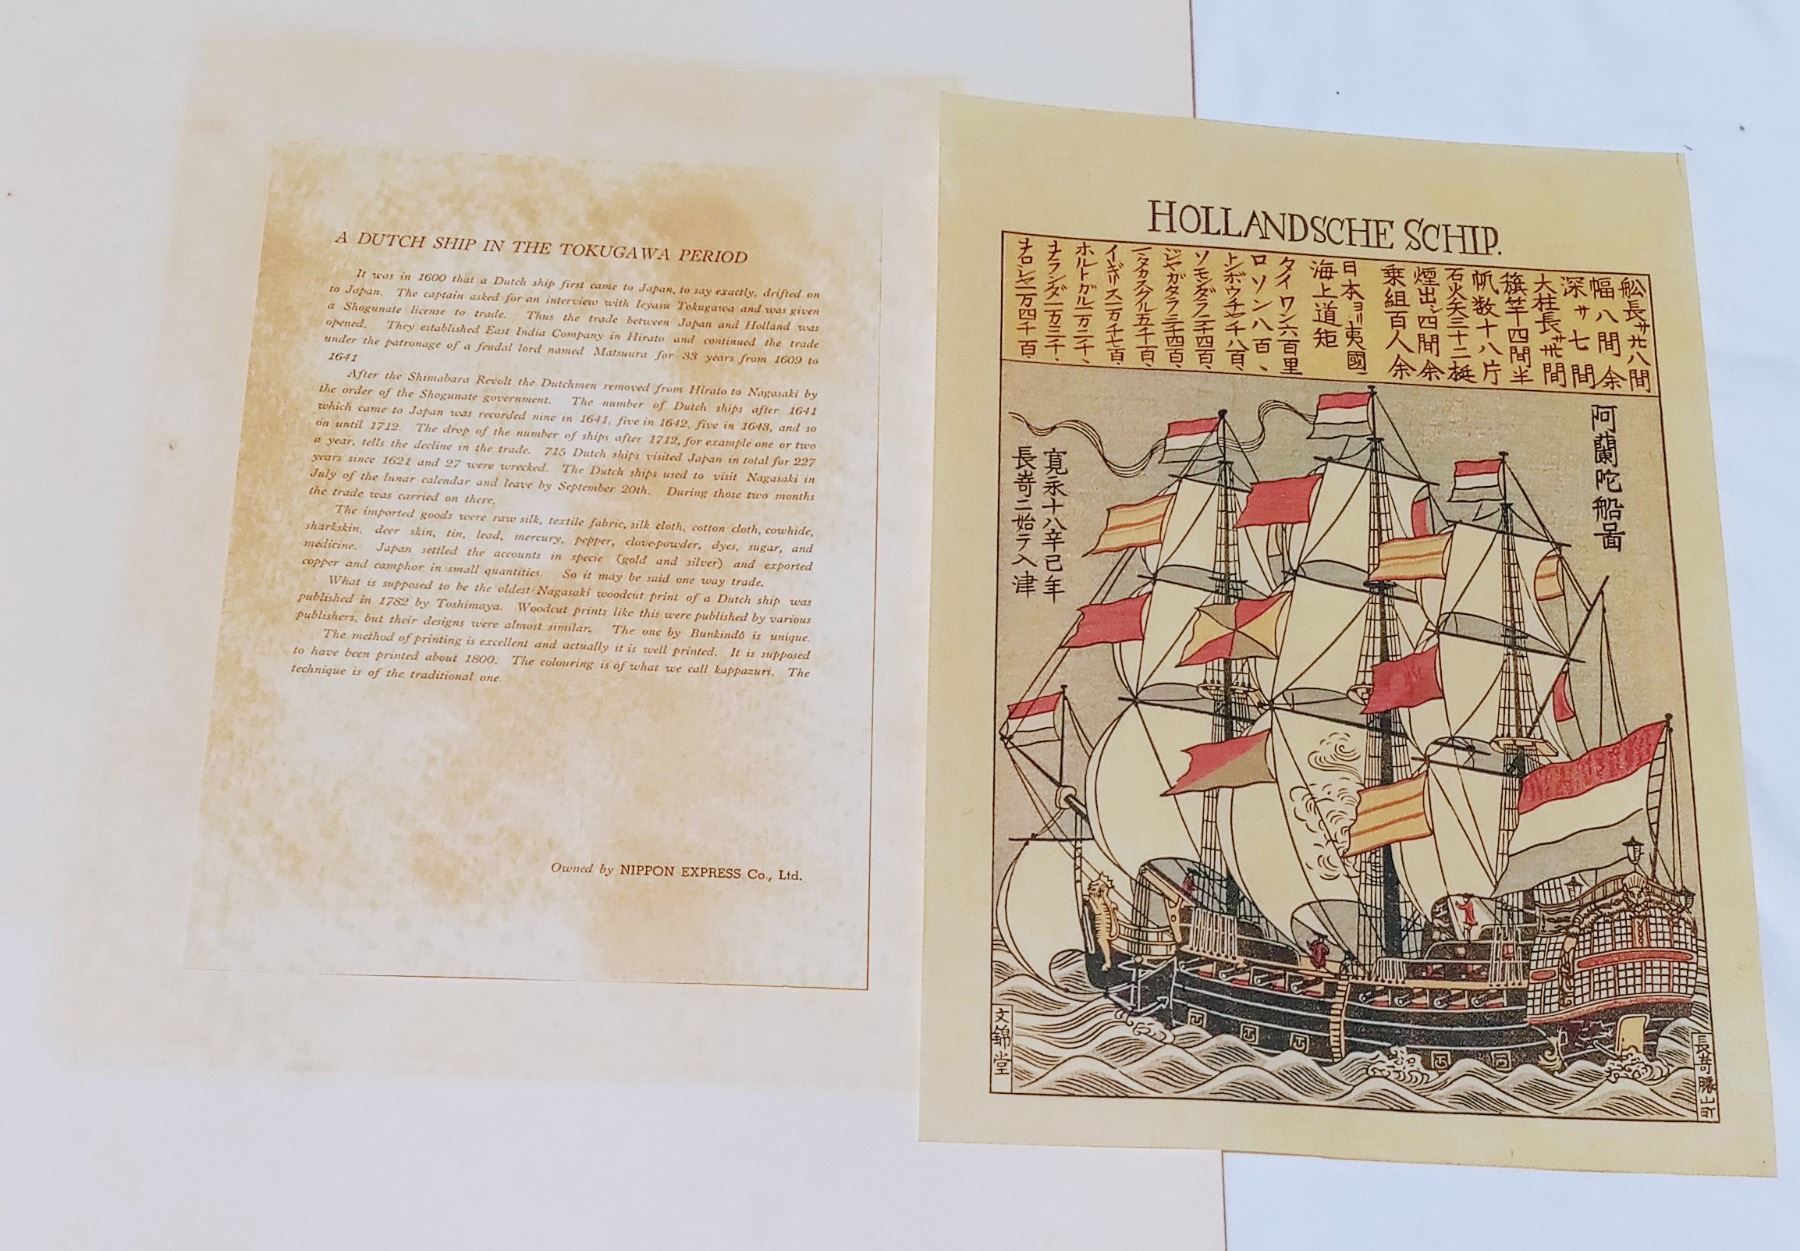 A DUTCH SHIP IN THE TOKUGAWA PERIOD
It was in 1600 that a Dutch ship first came to Japan, to say exactly, drifted on
to Japan. The captain asked for an interview with Ieyasu Tokugawa and was given
a Shogunate license to trade. Thus the trade between Japan and Holland was
opened. They established East India Company in Hirato and continued the trade
under the patronage of a feudal lord named Matsuura for 33 years from 1609 to
1641
After the Shimabara Revolt the Dutchmen removed from Hirato to Nagasaki by
the order of the Shogunate government. The number of Dutch ships after 1641
which came to Japan was recorded nine in 1641, five in 1642, five in 1643, and so
on until 1712. The drop of the number of ships after 1712, for example one or two
a year, tells the decline in the trade. 715 Dutch ships visited Japan in total for 227
years since 1621 and 27 were wrecked. The Dutch ships used to visit Nagasaki in
July of the lunar calendar and leave by September 20th. During those two months
the trade was carried on there.
The imported goods were raw silk, textile fabric, silk cloth, cotton cloth, cowhide,
sharkskin, deer skin, tin, lead, mercury, pepper, clove-powder, dyes, sugar, and
medicine. Japan settled the accounts in specie (gold and silver) and exported
copper and camphor in small quantities. So it may be said one way trade.
What is supposed to be the oldest Nagasaki woodcut print of a Dutch ship was
published in 1782 by Toshimaya. Woodcut prints like this were published by various
publishers, but their designs were almost similar. The one by Bunkindô is unique.
The method of printing is excellent and actually it is well printed. It is supposed
to have been printed about 1800. The colouring is of what we call kappazuri. The
technique is of the traditional one.
Owned by NIPPON EXPRESS Co., Ltd.
HOLLANDSCHE SCHIP.
舩長サ廾八間
幅八間余
深サ七間
大柱長サ卅間
簱竿四間半
帆数十八片
石火矢三十二挺
煙出シ四間余
乗組百人余
日本ヨリ夷國
海上道矩
タイワン六百里
ロソン八百、
トンボウチヤ千八百、
ソモンダラ二千四百、
ジヤガタラ三千四百、
一タカスクル五千百、
イギリス一万千七百、
ホルトガル一万二千、
ヲランダ一万三千、
ヲロシヤ一万四千百、
阿蘭陀船畐
寛永十八辛巳年
長嵜二始テ入津
文錦堂
長嵜勝山町